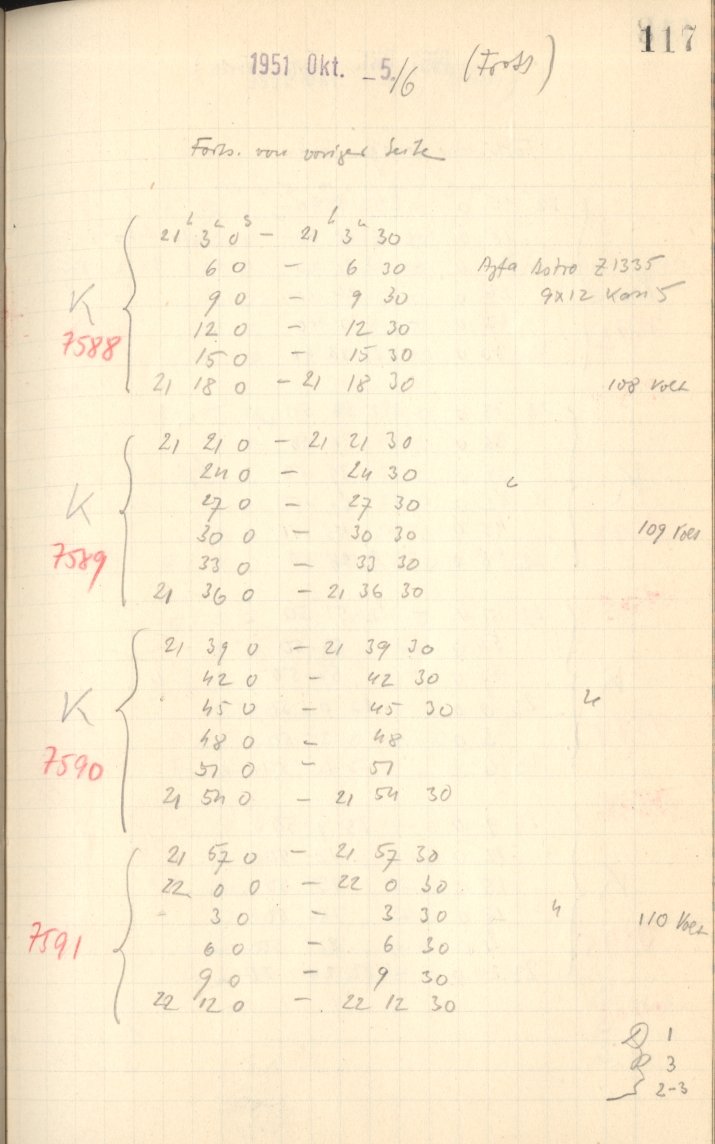 117
1951 Okt. -5./6 (Forts)
Forts. von voriger Seite
21h 3m 0s - 21h 3m 30
6 0 - 6 30 Agfa Astro Z1335
K 9 0 - 9 30 9x12 Kass 5
7588 12 0 - 12 30
15 0 - 15 30
21 18 0 - 21 18 30 108 Volt
21 21 0 - 21 21 30
24 0 - 24 30 "
K 27 0 - 27 30
30 0 - 30 30 109 Volt
7589 33 0 - 33 30
21 36 0 - 21 36 30
21 39 0 - 21 39 30
42 0 - 42 30
K 45 0 - 45 30 "
48 0 - 48
7590 51 0 - 51
21 54 0 - 21 54 30
21 57 0 - 21 57 30
22 0 0 - 22 0 30
3 0 - 3 30 " 110 Volt
7591 6 0 - 6 30
9 0 - 9 30
22 12 0 - 22 12 30
1
3
2-3